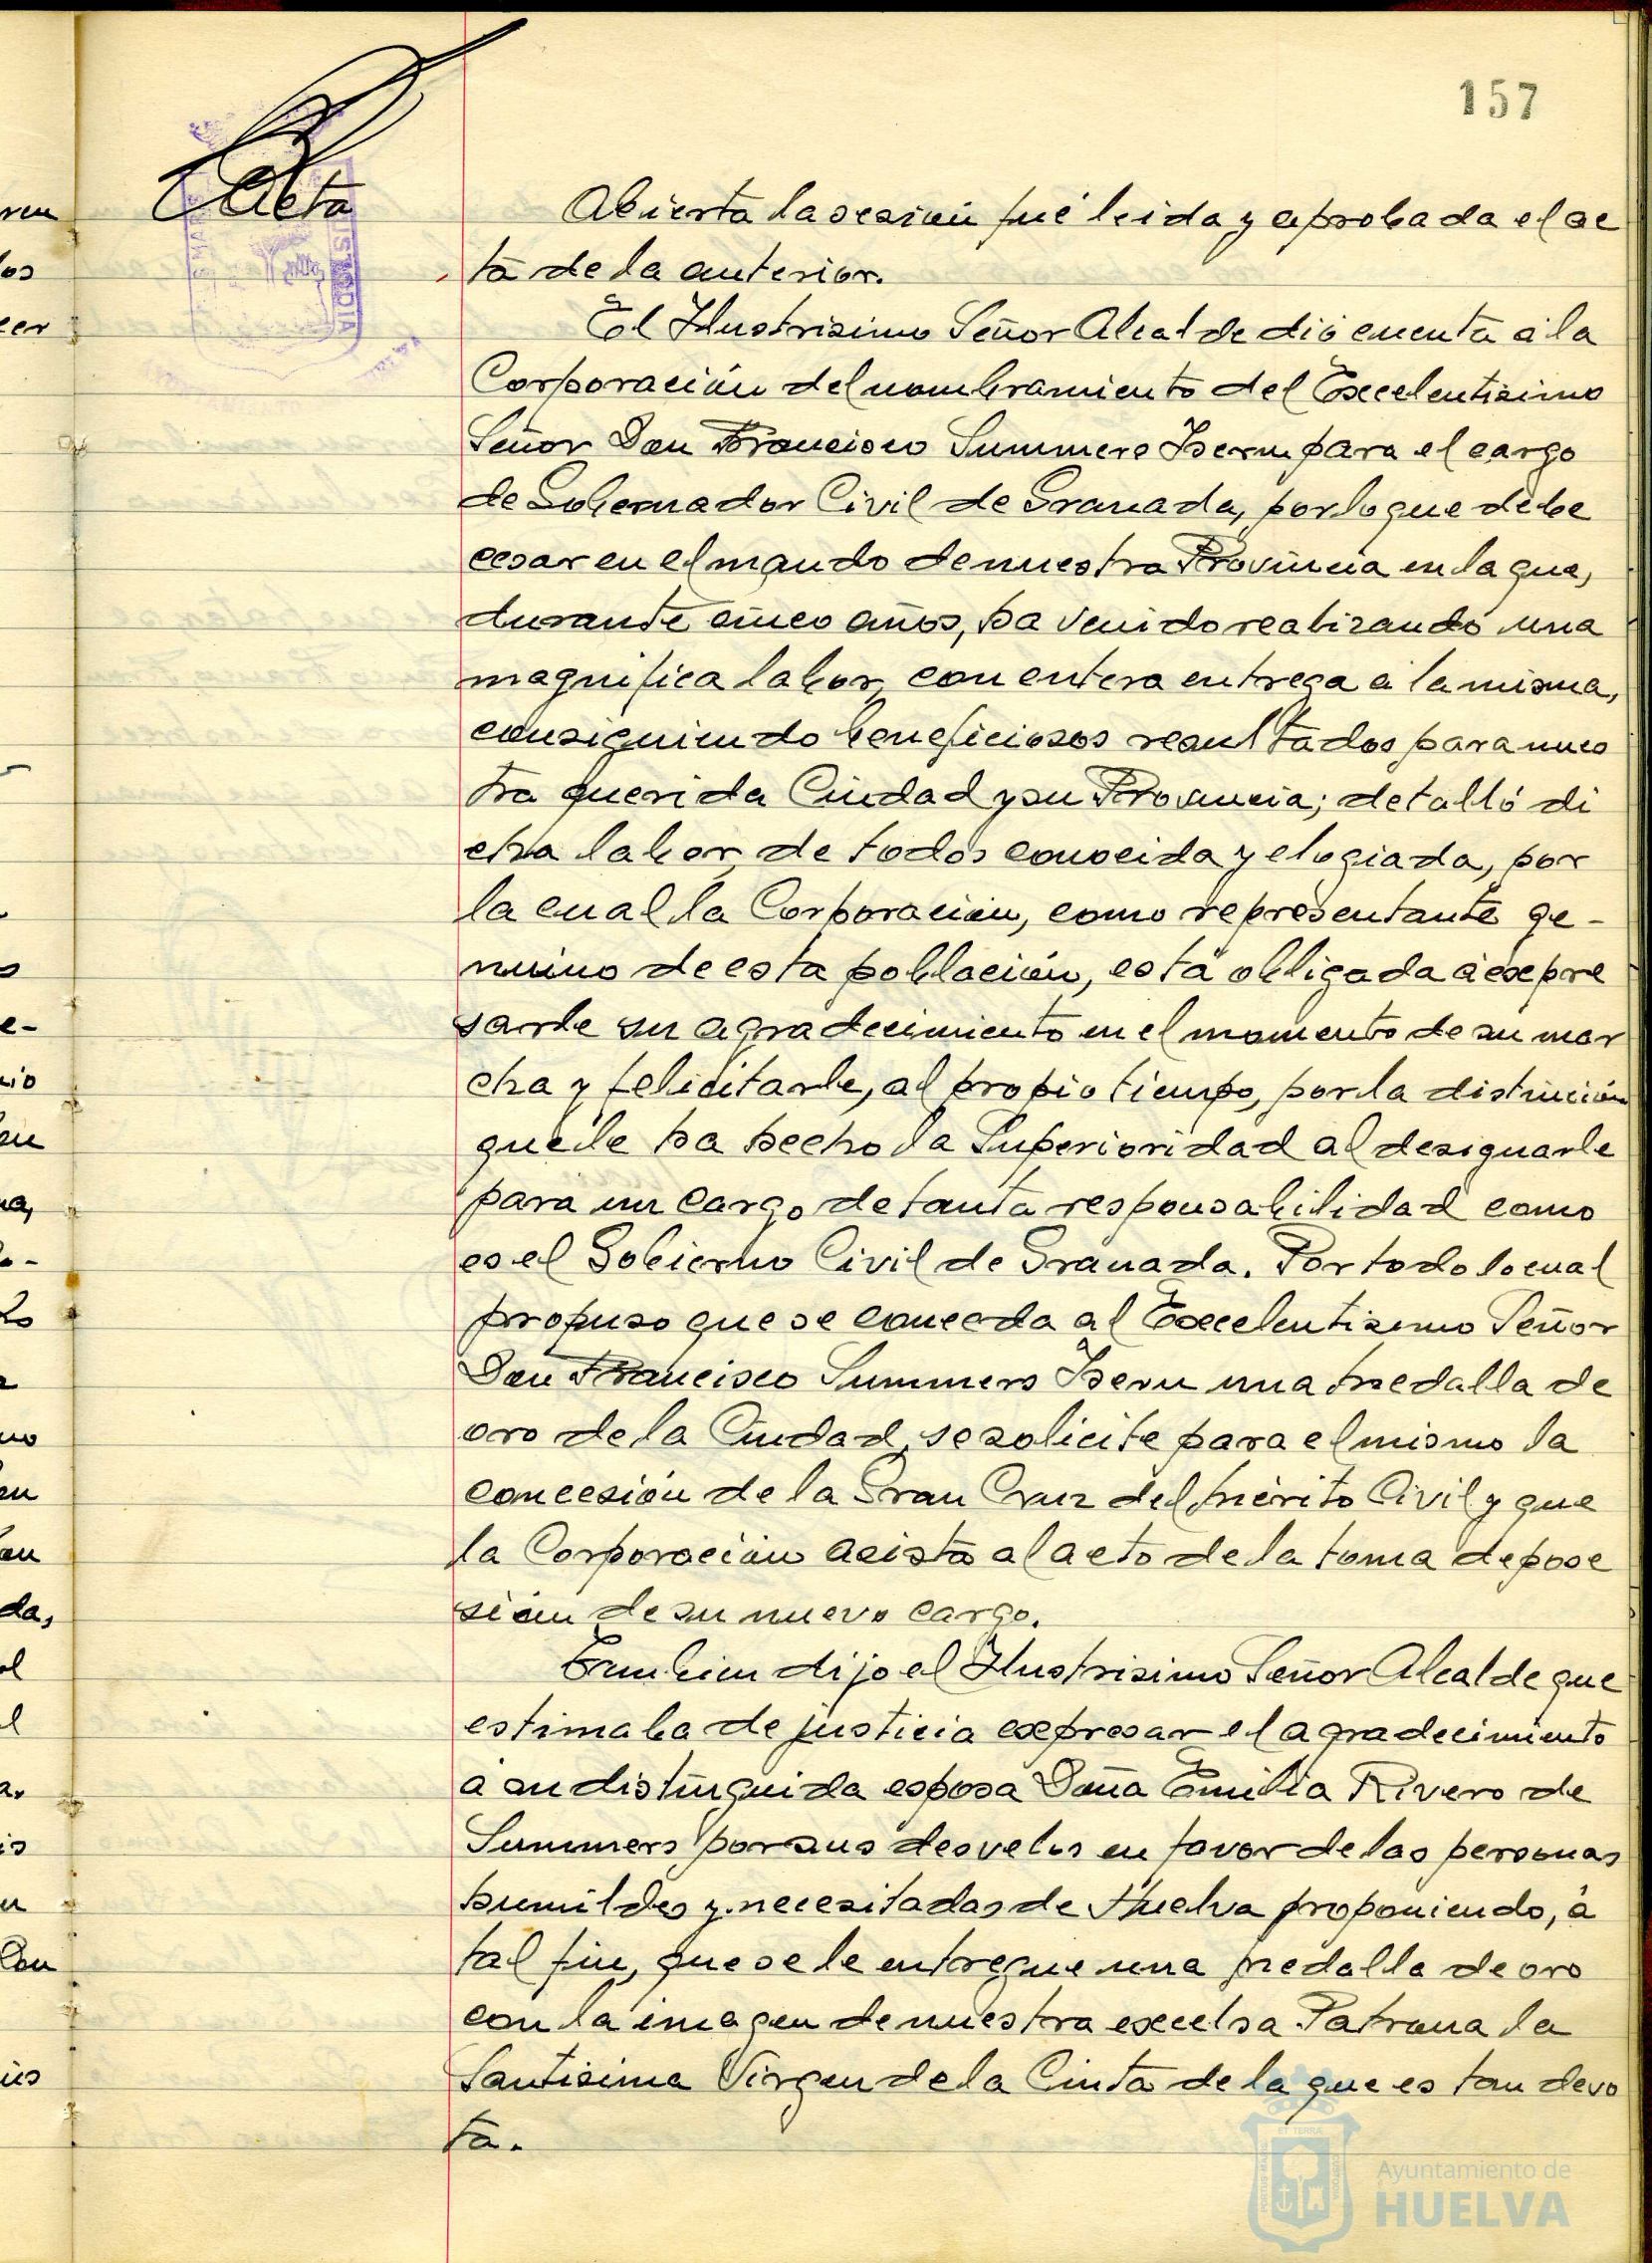 157
Acta
Abierta la sesión fué leida y aprobada el ac
ta de la anterior.
El Ilustrisimo Señor Alcalde dió cuenta á la
Corporación del nombramiento del Excelentisimo
Señor Don Francisco Summers Isern para el cargo
de Gobernador Civil de Granada, por lo que debe
cesar en el mando de nuestra Provincia en la que,
durante cinco años, ha venido realizando una
magnifica labor, con entera entrega a la misma,
consiguiendo beneficiosos resultados para nues
tra querida Ciudad y su Provincia; detalló di
cha labor, de todos conocida y elogiada, por
la cual la Corporación, como representante ge-
nuino de esta población, está obligada á expre
sarle su agradecimiento en el momento de su mar
cha y felicitarle, al propio tiempo, por la distinción
que le ha hecho la Superioridad al designarle
para un cargo de tanta responsabilidad como
es el Gobierno Civil de Granada. Por todo lo cual
propuso que se conceda al Excelentisimo Señor
Don Francisco Summers Isern una medalla de
oro de la Ciudad, se solicite para el mismo la
concesión de la Gran Cruz del Mérito Civil y que
la Corporación asista al acto de la toma de pose
sión de su nuevo cargo.
Tambien dijo el Ilustrisimo Señor Alcalde que
estimaba de justicia expresar el agradecimiento
á su distinguida esposa Doña Emilia Rivero de
Summers por sus desvelos en favor de las personas
humildes y necesitadas de Huelva proponiendo, á
tal fin, que se le entregue una medalla de oro
con la imagen de nuestra excelsa Patrona la
Santisima Virgen de la Cinta de la que es tan devo
ta.
Ayuntamiento de
HUELVA